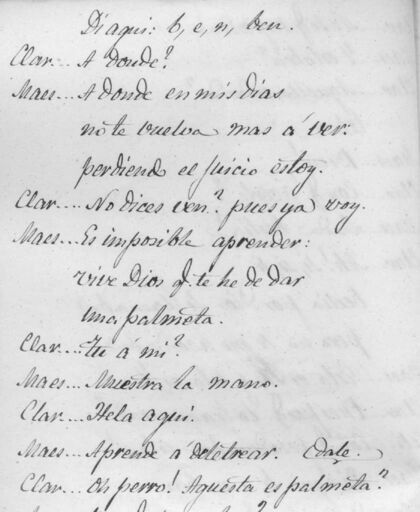 Di aqui: b, e, n, ben.
Clar... A donde?
Maes... A donde en mis dias
no te vuelva mas á ver:
perdiendo el juicio estoy.
Clar.... No dices ven? pues ya voy.
Maes.... Es imposible aprender:
vive Dios q. te he de dar
una palmeta.
Clar.... Tu á mi?
Maes... Muestra la mano.
Clar.... Hela aqui.
Maes... Aprende á deletrear. Cdale.
Clar.... Oh perro! Aquesta es palmeta?